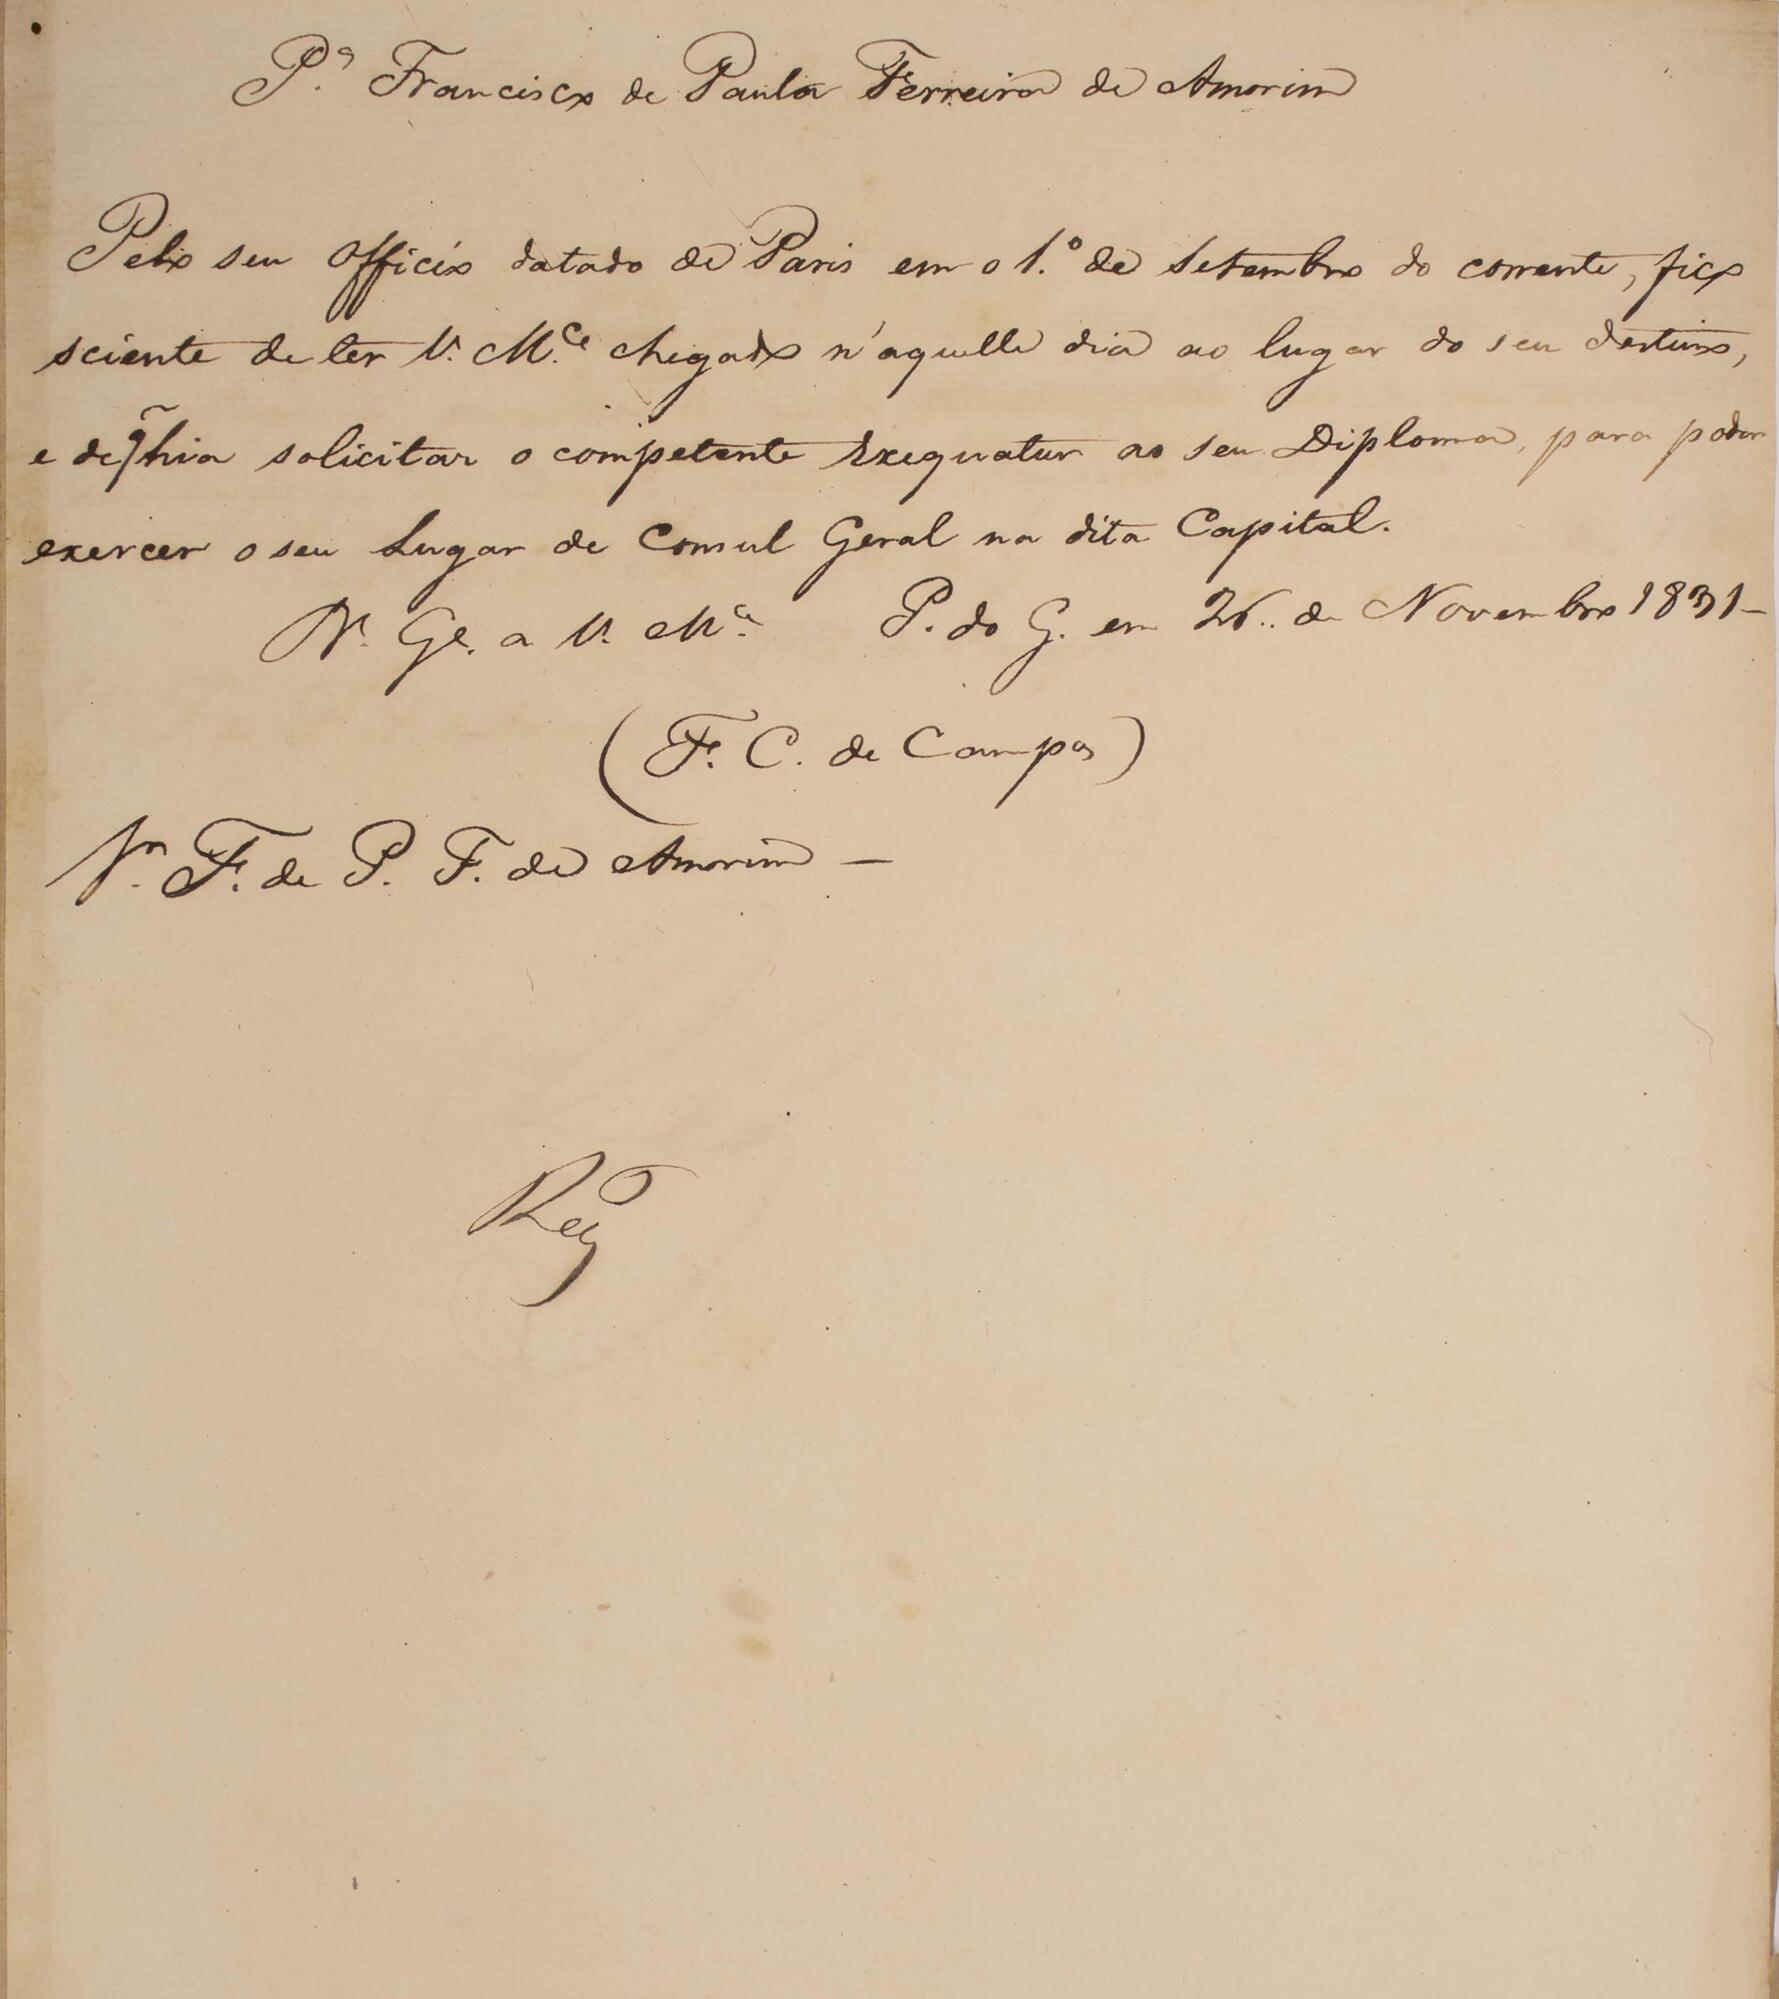 P.ª Francisco de Paula Ferreira de Amorim
Pelo seu Officio datado de Paris em o 1.º de Setembro do corrente, fico
sciente de ter V. M.ce chegado n'aquelle dia ao lugar do seu destino,
e de q̃ hia solicitar o competente Exequatur ao seu Diploma, para poder
exercer o seu Lugar de Consul Geral na dita Capital.
D.s G.e a V. M.ce P. do G. em 26.. de Novembro 1831—
(F. C. de Campos)
S.r F. de P. F. de Amorim —